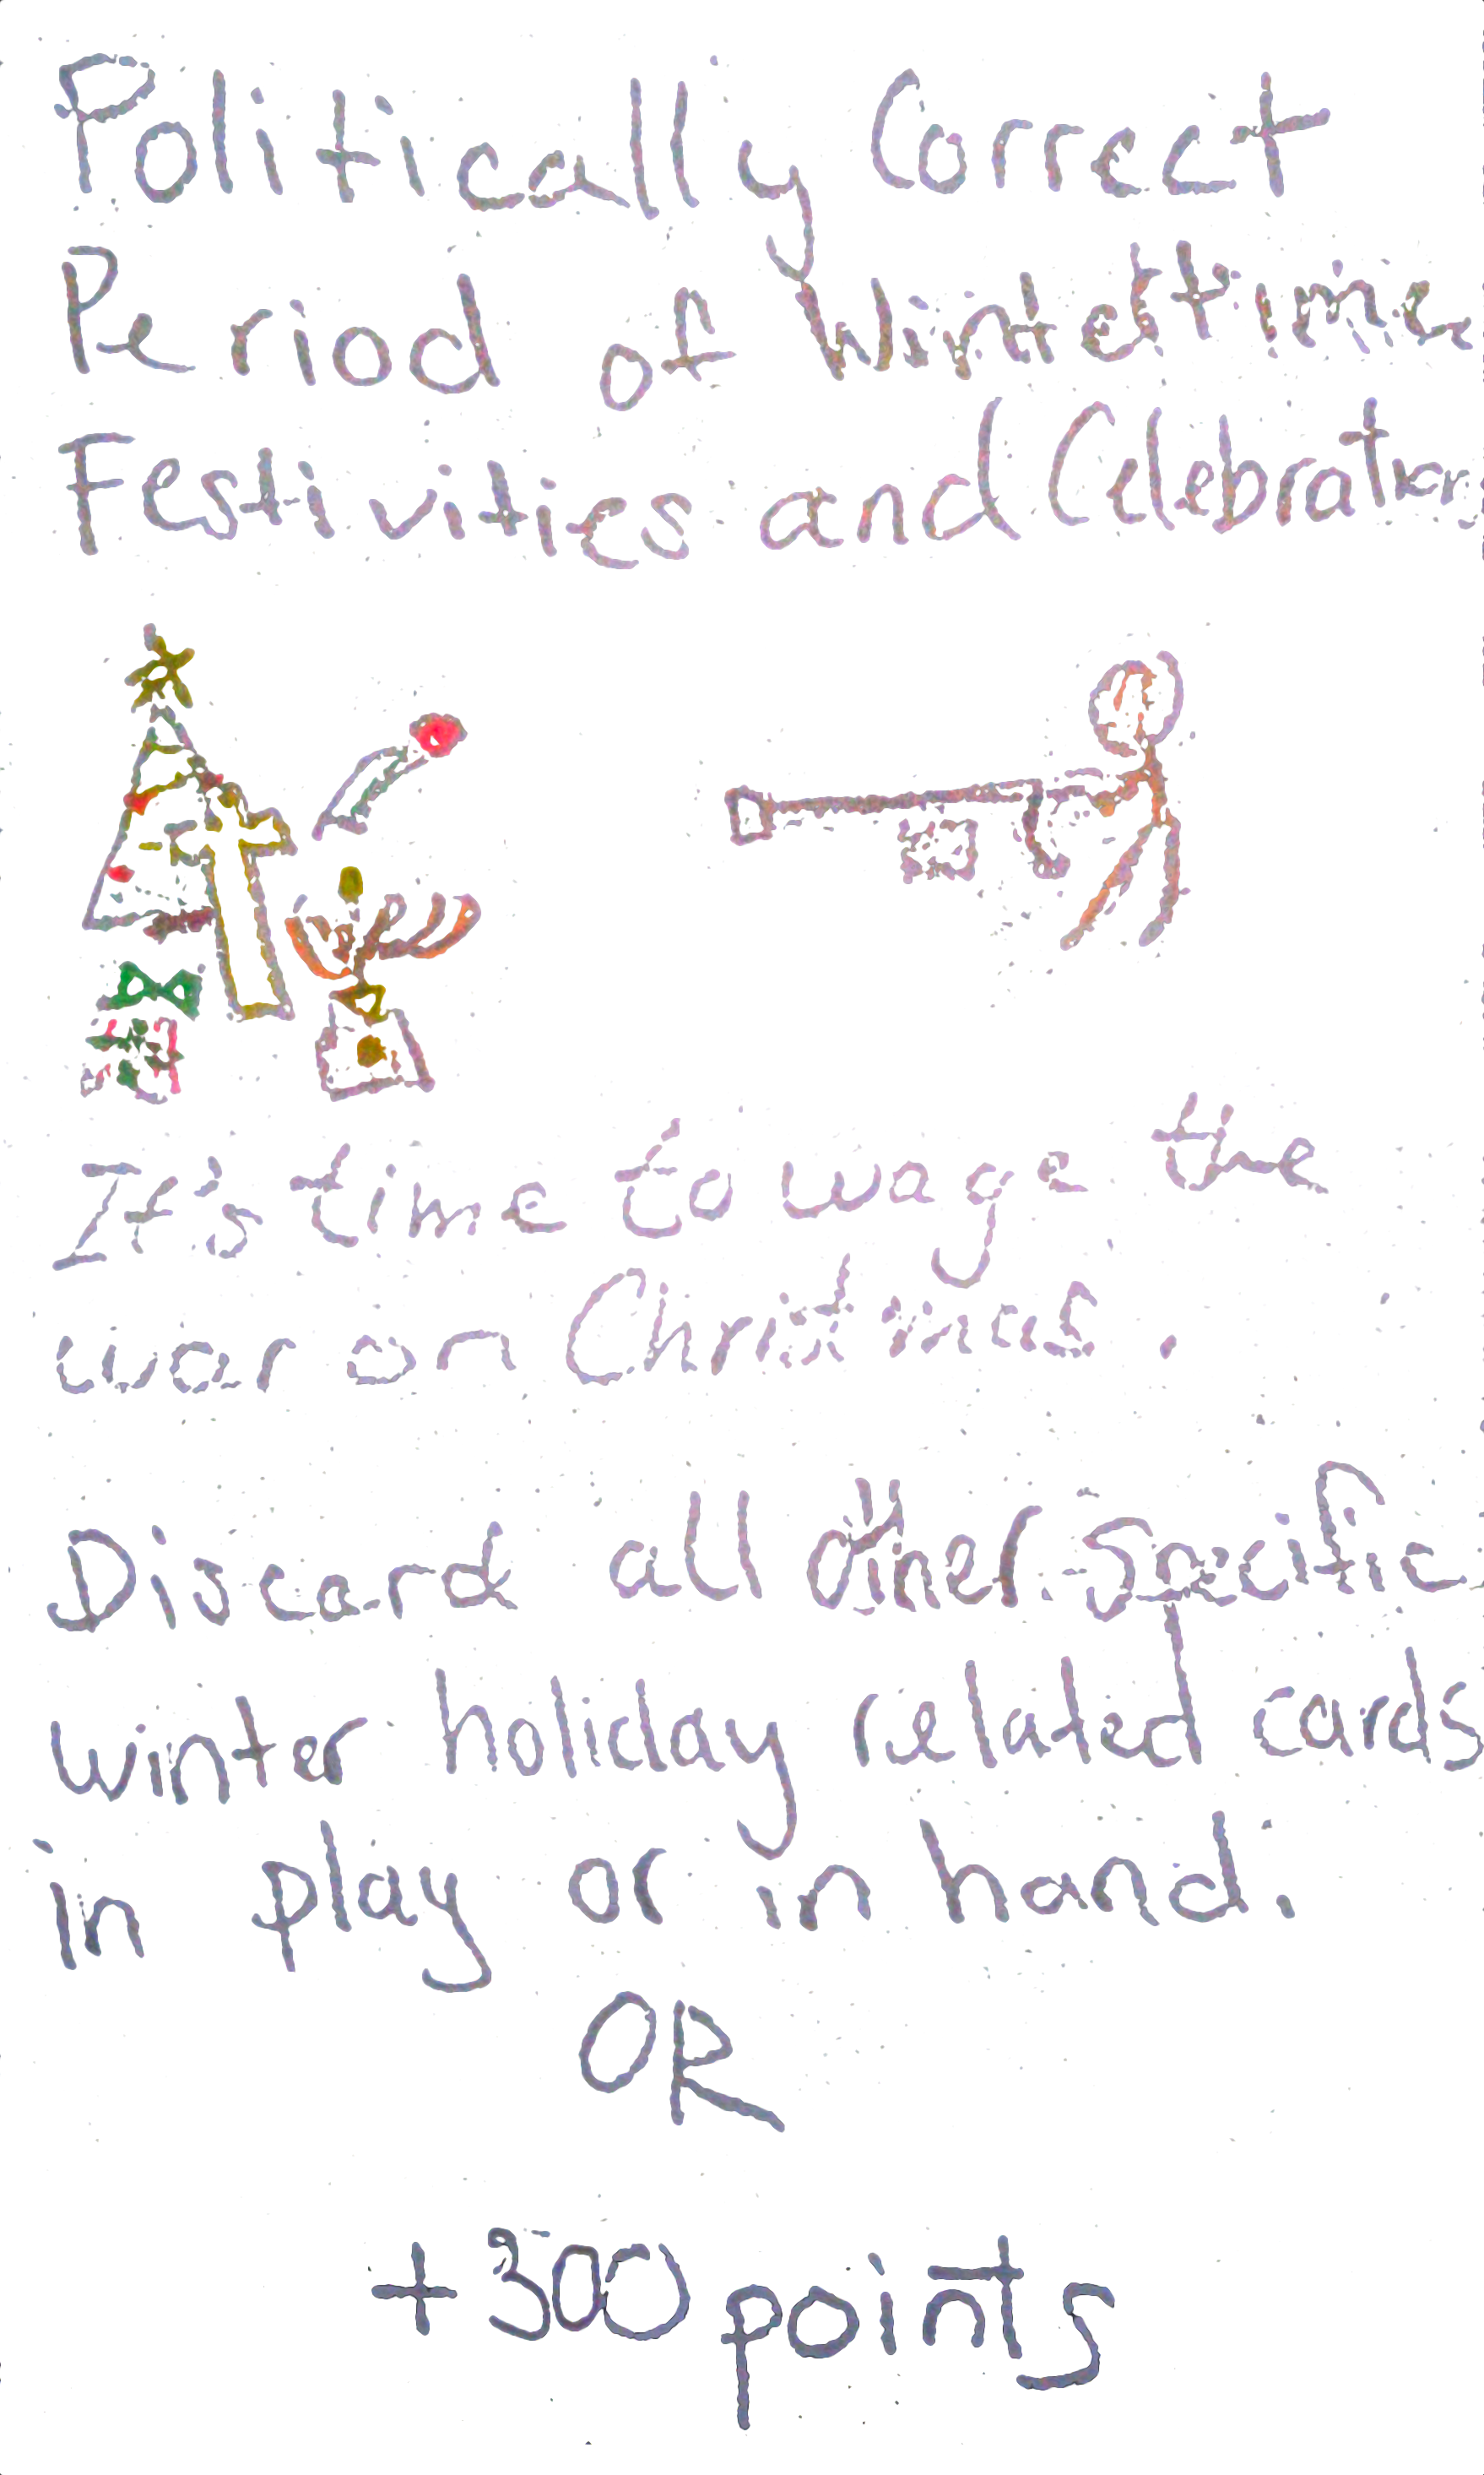 Politically Correct
Period of Wintertime
Festivities and Celebrations
It's time to wage the
war on Christmas.
Discard all other specific
winter holiday related cards
in play or in hand.
OR
+300 points